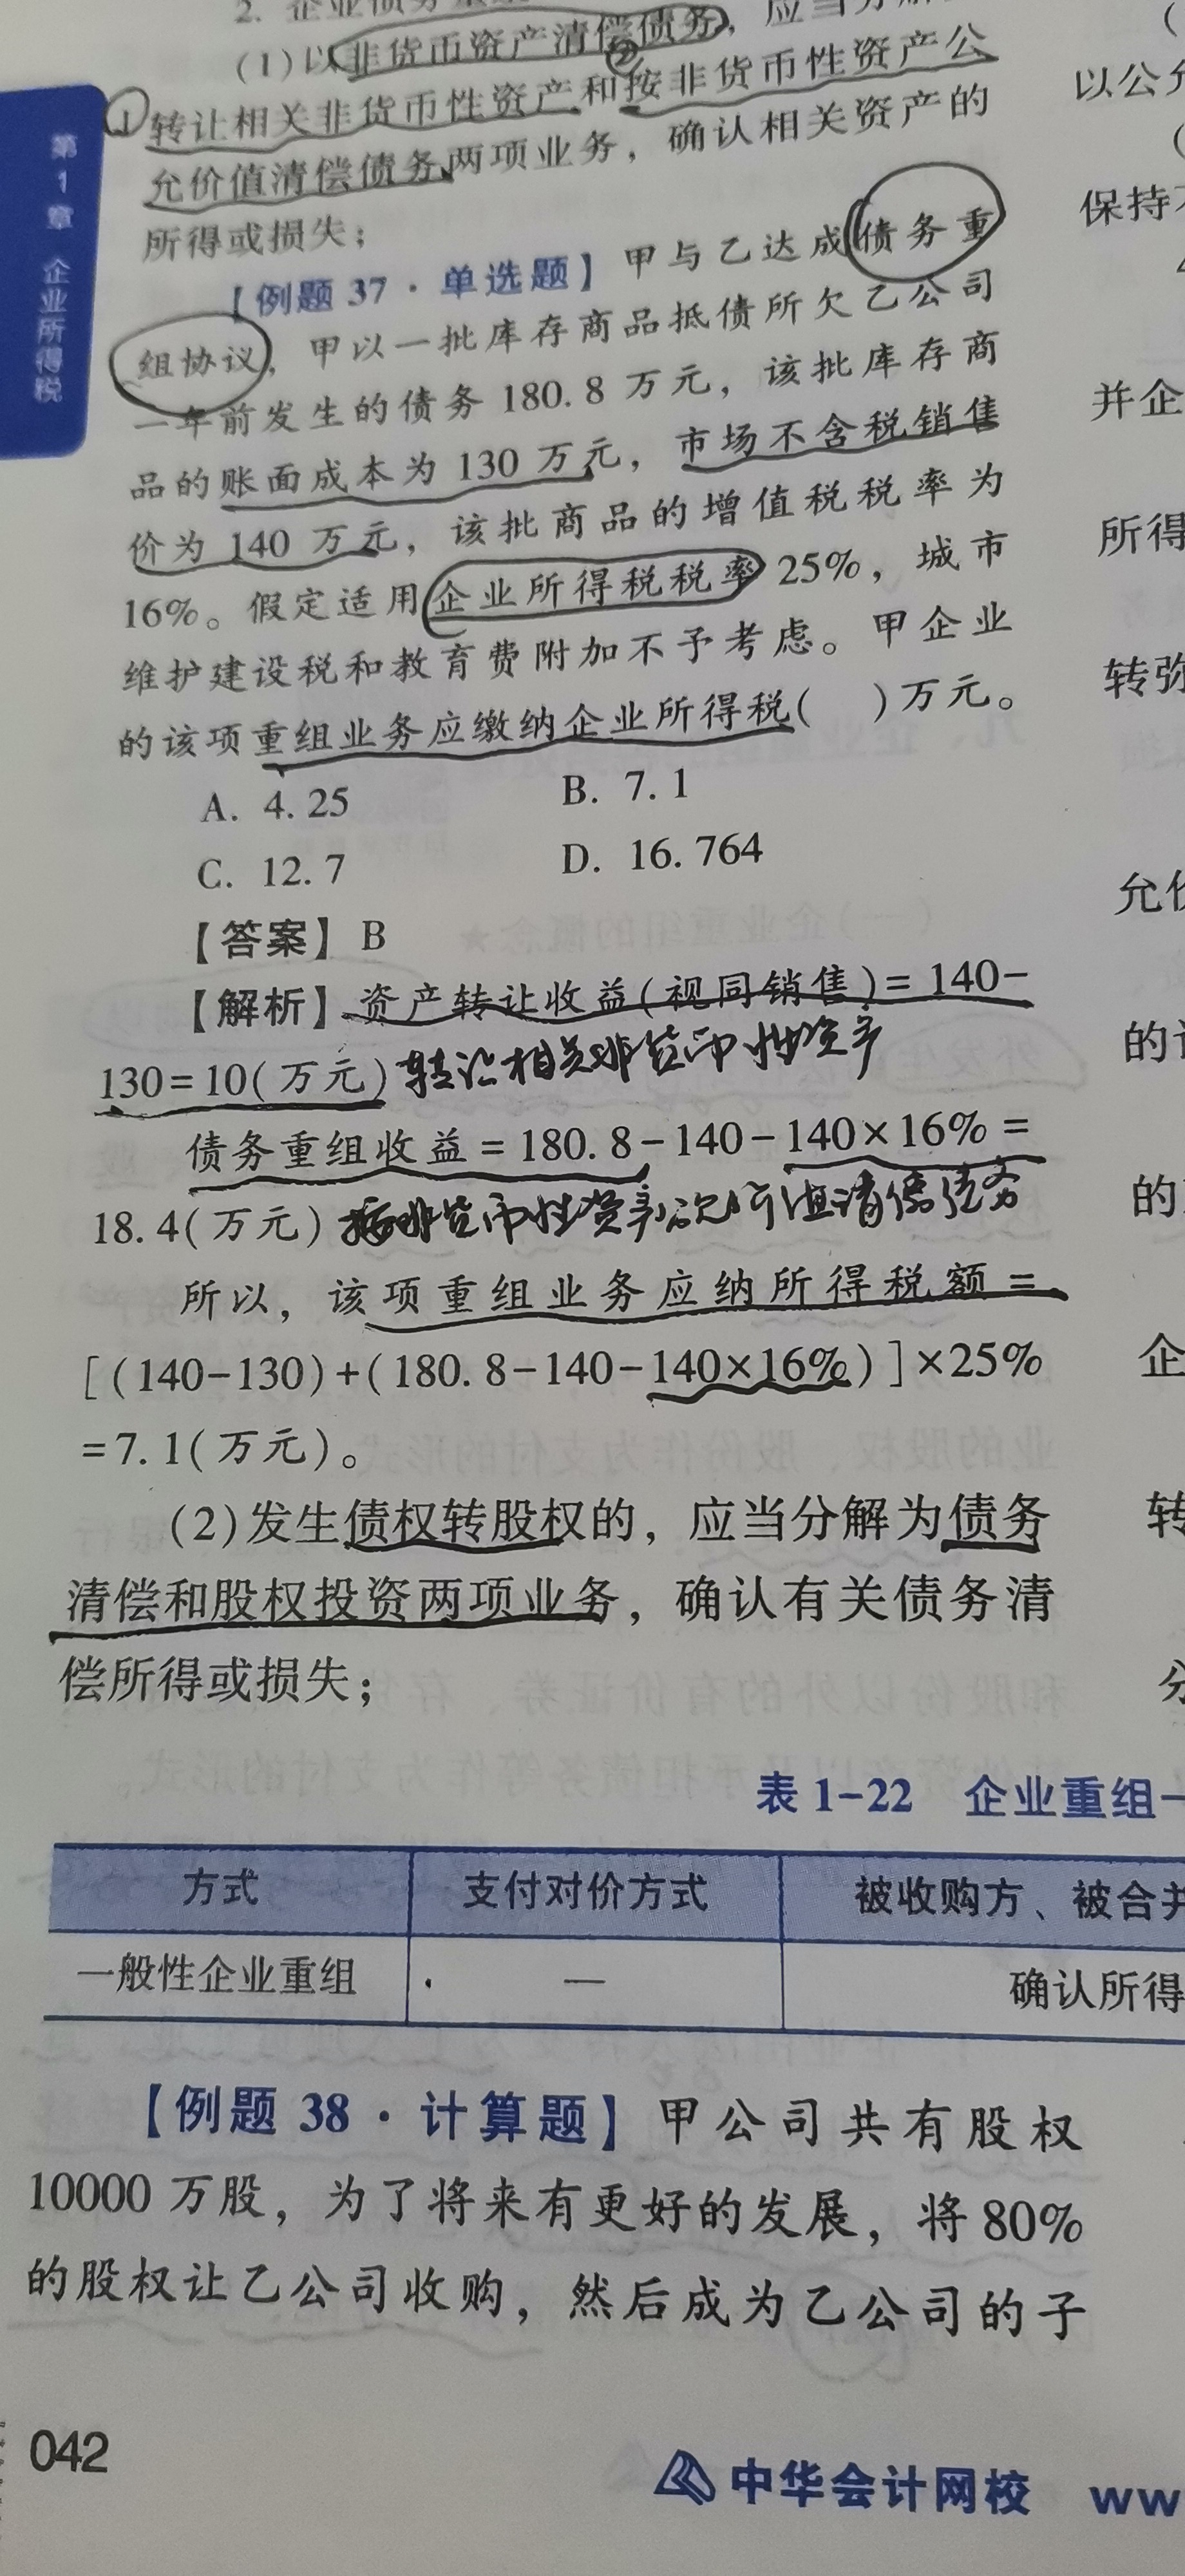 2. 企业债务
(1)以非货币资产清偿债务，应当分解
②
①转让相关非货币性资产和按非货币性资产公
允价值清偿债务两项业务，确认相关资产的
所得或损失；
【例题 37·单选题】甲与乙达成债务重
组协议，甲以一批库存商品抵债所欠乙公司
一年前发生的债务 180.8 万元，该批库存商
品的账面成本为 130 万元，市场不含税销售
价为 140 万元，该批商品的增值税税率为
16%。假定适用企业所得税税率 25%，城市
维护建设税和教育费附加不予考虑。甲企业
的该项重组业务应缴纳企业所得税(　　)万元。
A. 4.25　　B. 7.1
C. 12.7　　D. 16.764
【答案】B
【解析】资产转让收益(视同销售)=140-
130=10(万元) 转让相关非货币性资产
债务重组收益=180.8-140-140×16%=
18.4(万元) 按非货币性资产公允价值清偿债务
所以，该项重组业务应纳所得税额=
[(140-130)+(180.8-140-140×16%)]×25%
=7.1(万元)。
(2)发生债权转股权的，应当分解为债务
清偿和股权投资两项业务，确认有关债务清
偿所得或损失；
表 1-22　企业重组一
方式　支付对价方式　被收购方、被合并
一般性企业重组　—　确认所得
【例题 38·计算题】甲公司共有股权
10000 万股，为了将来有更好的发展，将 80%
的股权让乙公司收购，然后成为乙公司的子
042
中华会计网校　ww
第1章 企业所得税
以公允
保持
并企
所得
转弥
允价
的
的
企
转